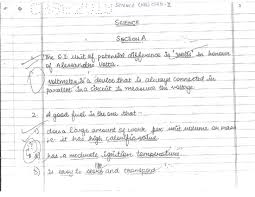 SCIENCE
SECTION A
The S.I unit of potential difference is "volts" in honour
of Alessandro Volta.
Voltmeter is a device that is always connected in
parallel in a circuit to measure the voltage.
2. A good fuel is the one that -
does large amount of work per unit volume or mass
i.e. it has high calorific value
has a moderate ignition temperature
b) is easy to and transport